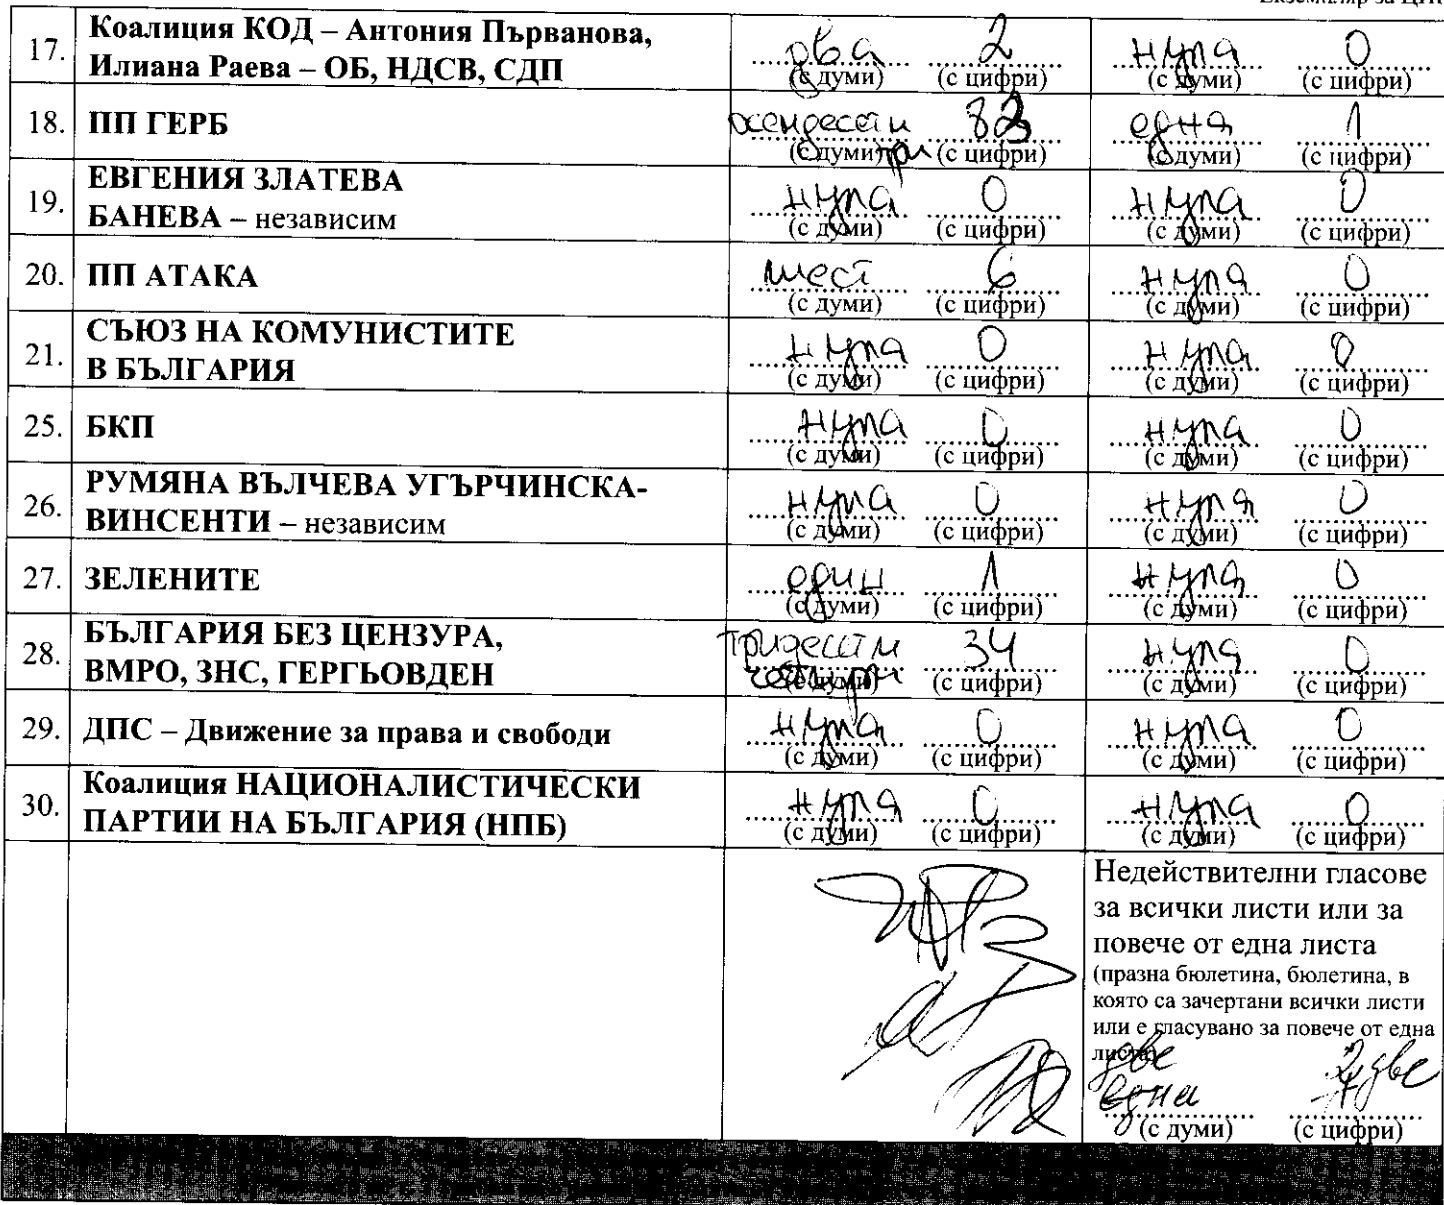 Екземпляр за ЦИК
17. Коалиция КОД – Антония Първанова, Илиана Раева – ОБ, НДСВ, СДП два (с думи) 2 (с цифри) нула (с думи) 0 (с цифри)
18. ПП ГЕРБ осемдесет и три (с думи) 83 (с цифри) една (с думи) 1 (с цифри)
19. ЕВГЕНИЯ ЗЛАТЕВА БАНЕВА – независим нула (с думи) 0 (с цифри) нула (с думи) 0 (с цифри)
20. ПП АТАКА шест (с думи) 6 (с цифри) нула (с думи) 0 (с цифри)
21. СЪЮЗ НА КОМУНИСТИТЕ В БЪЛГАРИЯ нула (с думи) 0 (с цифри) нула (с думи) 0 (с цифри)
25. БКП нула (с думи) 0 (с цифри) нула (с думи) 0 (с цифри)
26. РУМЯНА ВЪЛЧЕВА УГЪРЧИНСКА-ВИНСЕНТИ – независим нула (с думи) 0 (с цифри) нула (с думи) 0 (с цифри)
27. ЗЕЛЕНИТЕ един (с думи) 1 (с цифри) нула (с думи) 0 (с цифри)
28. БЪЛГАРИЯ БЕЗ ЦЕНЗУРА, ВМРО, ЗНС, ГЕРГЬОВДЕН тридесет и четири (с думи) 34 (с цифри) нула (с думи) 0 (с цифри)
29. ДПС – Движение за права и свободи нула (с думи) 0 (с цифри) нула (с думи) 0 (с цифри)
30. Коалиция НАЦИОНАЛИСТИЧЕСКИ ПАРТИИ НА БЪЛГАРИЯ (НПБ) нула (с думи) 0 (с цифри) нула (с думи) 0 (с цифри)
Недействителни гласове
за всички листи или за
повече от една листа
(празна бюлетина, бюлетина, в
която са зачертани всички листи
или е гласувано за повече от една
листа)
две 2 две
една 1
(с думи) (с цифри)